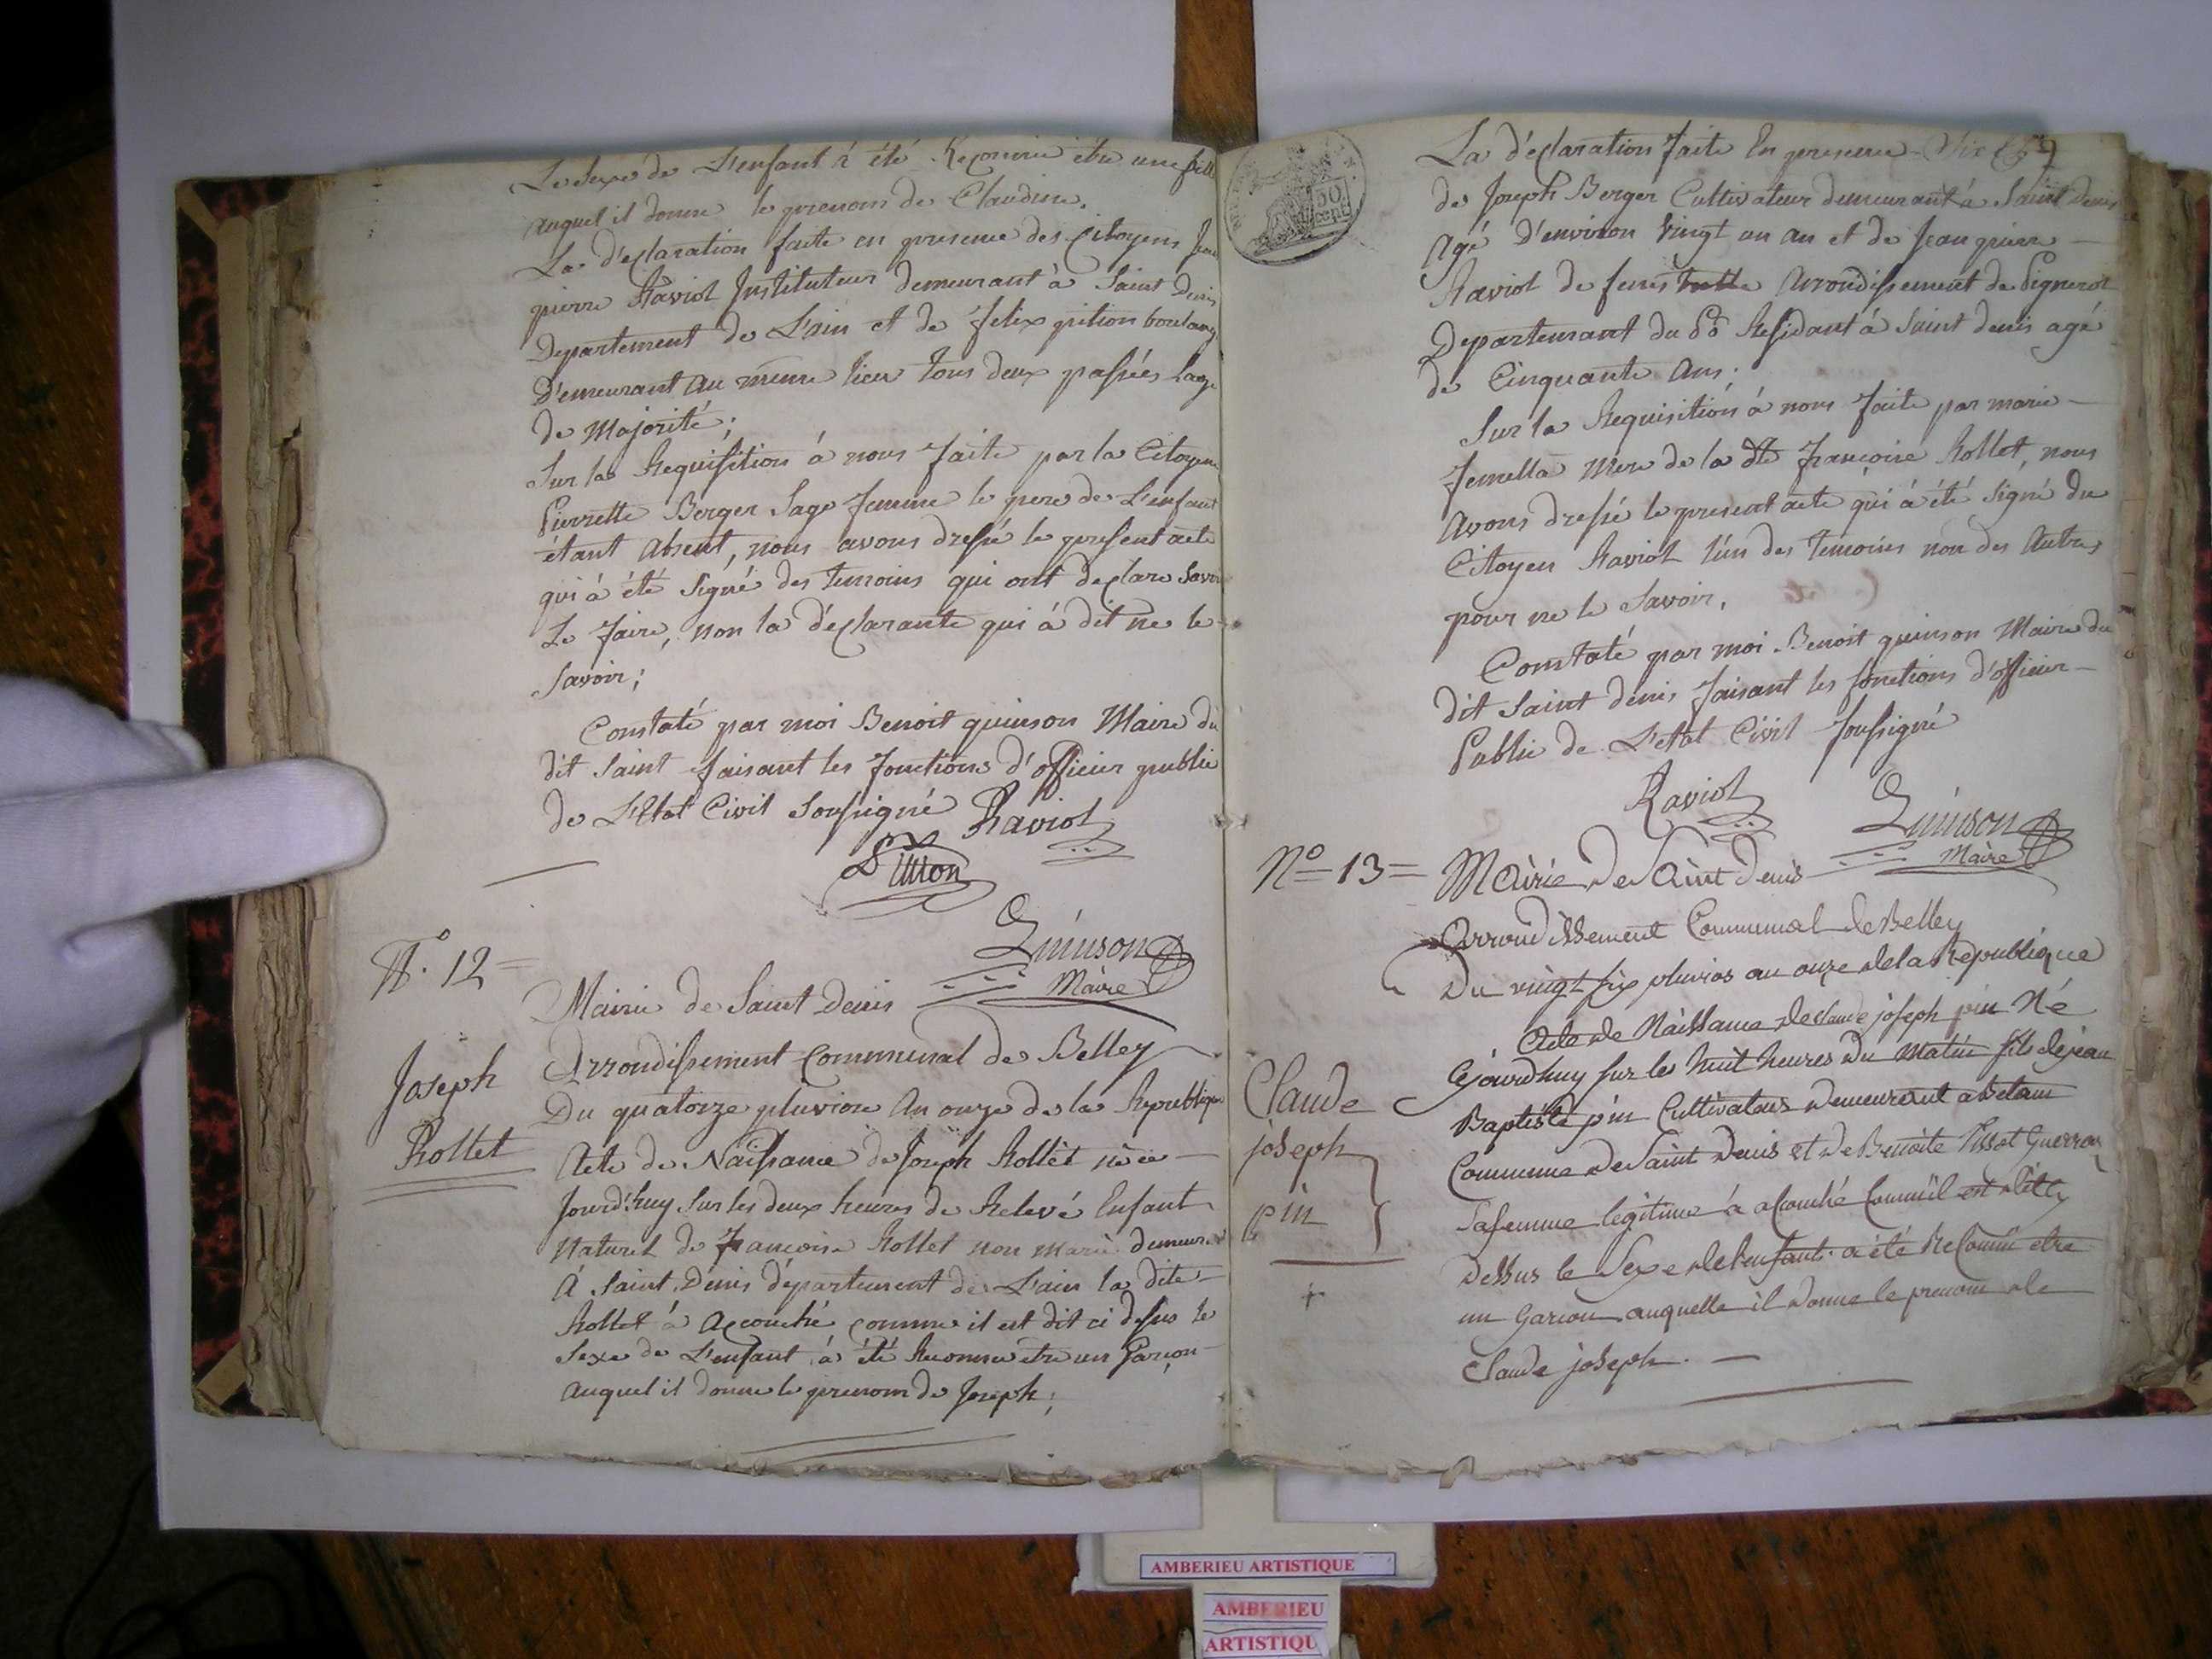 Le Sexe de L'enfant à été Reconnue être une fille
auquel il donne le prenom de Claudine.
La déclaration faite en presence des Citoyens Jean
pierre Raviol Instituteur demeurant à Saint Denis
Departement de L'ain et de felix pition boulang
Demeurant au même lieu tous deux passées Lage
de Majorité;
Sur la Requisition à nous faite par la Citoyene
Pierrette Berger Sage femme le pere de L'enfant
étant absent, nous avons dressé le present acte
qui à été Signé des temoins qui ont declare Savoir
Le faire, non la déclarante qui à dit ne le
Savoir;
Constaté par moi Benoit quinson Maire du
dit Saint faisant les fonctions d'officier public
de L'Etat Civil Soussigné Raviol
Quinson
Maire
N°. 12 =
Joseph
Rollet
Mairie de Saint Denis
Arrondissement Communal de Belley
Du quatorze pluviose An onze de la Republique
Acte de Naissance de Joseph Rollet née ce
Jourd'huy Sur les deux heures de Relevé Enfant
Naturel de françoise Rollet non marié demeurt
à Saint Denis département de L'ain la dite
Rollet à accouché comme il est dit ci dessus le
Sexe de L'enfant à été Reconnu être un Garçon
auquel il donne le prenom de Joseph;
La déclaration faite En presence
de Joseph Berger Cultivateur demeurant à Saint Denis
Agé d'environ Vingt un an et de Jean pierre
Raviol de fenestrelle Arrondissement de Pignerol
Departement du Pô Residant à Saint denis agé
de Cinquante Ans;
Sur la Requisition à nous faite par marie
Jemella Mere de la dte françoise Rollet, nous
Avons dressé le present acte qui à été Signé du
Citoyen Raviol l'un des temoins non des Autres
pour ne le Savoir,
Constaté par moi Benoit quinson Maire du
dit Saint denis faisant les fonctions d'officier
Public de L'etat Civil Soussigné
Raviol Quinson
Maire
N° 13 = Mairie de Saint Denis
Arrondissement Communal de Belley
Du vingt six pluvios an onze de la Republique
Acte de Naissance de claude joseph pin Né
Cejourdhuy sur les huit heures du matin fils de jean
Baptiste pin Cultivateur demeurant a
Commune de Saint Denis et de Benoite
Sa femme legitime à acouché Comme il est dit cy
dessus le Sexe de l'enfant a été Reconnu etre
un Garcon auquelle il donne le prenom de
Claude joseph.
Claude
joseph
pin
AMBERIEU ARTISTIQUE
AMBERIEU
ARTISTIQU